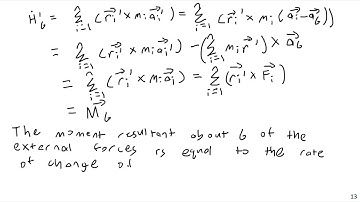 Ḣ'₆ = Σⁿᵢ₌₁ (r⃗ᵢ' × mᵢa⃗ᵢ') = Σⁿᵢ₌₁ (r⃗ᵢ' × mᵢ(a⃗ᵢ - a⃗₆))
= Σⁿᵢ₌₁ (r⃗ᵢ' × mᵢa⃗ᵢ) - (Σⁿᵢ₌₁ mᵢr⃗') × a⃗₆
= Σⁿᵢ₌₁ (r⃗ᵢ' × mᵢa⃗ᵢ) = Σⁿᵢ₌₁ (r⃗ᵢ' × F⃗ᵢ)
= M⃗₆
The moment resultant about 6 of the
external forces is equal to the rate
of change of
13